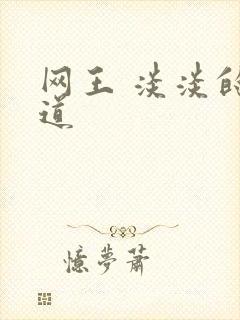 网王 淡淡的
道
憶夢蕭